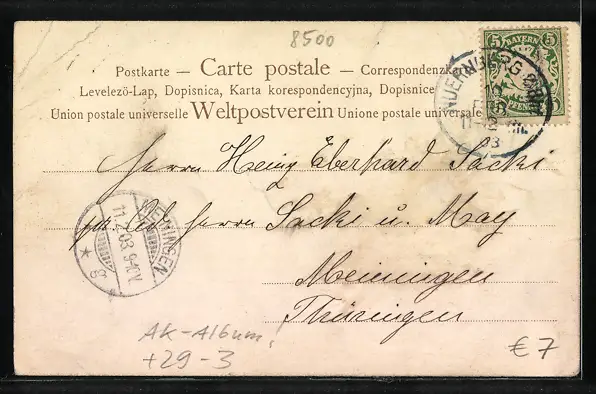 8500
5 BAYERN 5
PFENNIG
NUERNBERG
10
FEB
11-12 Vm.
03
Postkarte – Carte postale – Correspondenzkarte
Levelezö-Lap, Dopisnica, Karta korespondencyjna, Dopisnice
Union postale universelle Weltpostverein Unione postale universale
Herrn Heinz Eberhard Sacki
Herrn Sacki u. May
Meiningen
Thüringen
MEININGEN
11.2.03 9-10V.
AK-Album,
+29-3
€ 7